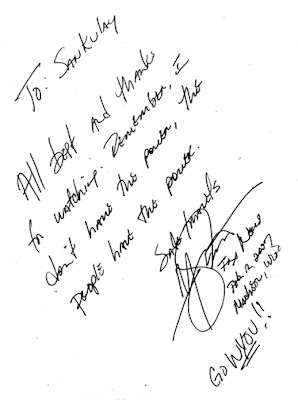 To: Sankulay
All best and thanks
for watching. Remember, I
don't have the power, the
people have the power.
Safe travels
Fox News
2007
Madison, Wis
Go WYOU!!